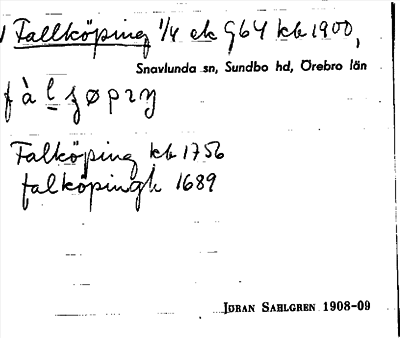 Fallköping 1/4 ek G64 kb 1900,
Snavlunda sn, Sundbo hd, Örebro län
Falköping kb 1756
falköping k 1689
JÖRAN SAHLGREN 1908-09